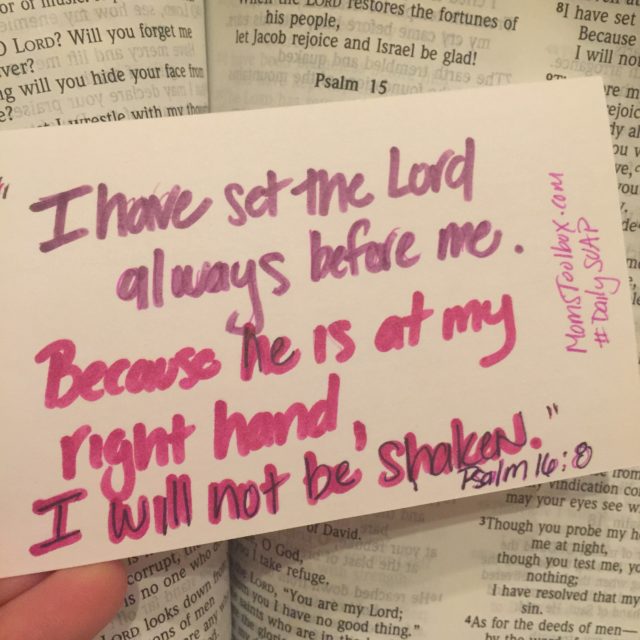 O LORD? Will you forget me
will you hide your face from
I wrestle with my
LORD restores the fortunes of
his people,
let Jacob rejoice and Israel be glad!
Psalm 15
8I have set
Because
I will not
"I have set the Lord
always before me.
Because he is at my
right hand,
I will not be shaken."
Psalm 16:8
MomsToolbox.com
#DailySOAP
corrupt,
is no one who
LORD looks down
of men
of David.
O God,
I take refuge.
LORD, "You are my Lord;
you I have no good thing."
who are in the
vindication
may your eyes see
3Though you probe my
me at night,
though you test me, you
nothing;
I have resolved that my
sin.
4As for the deeds of men—